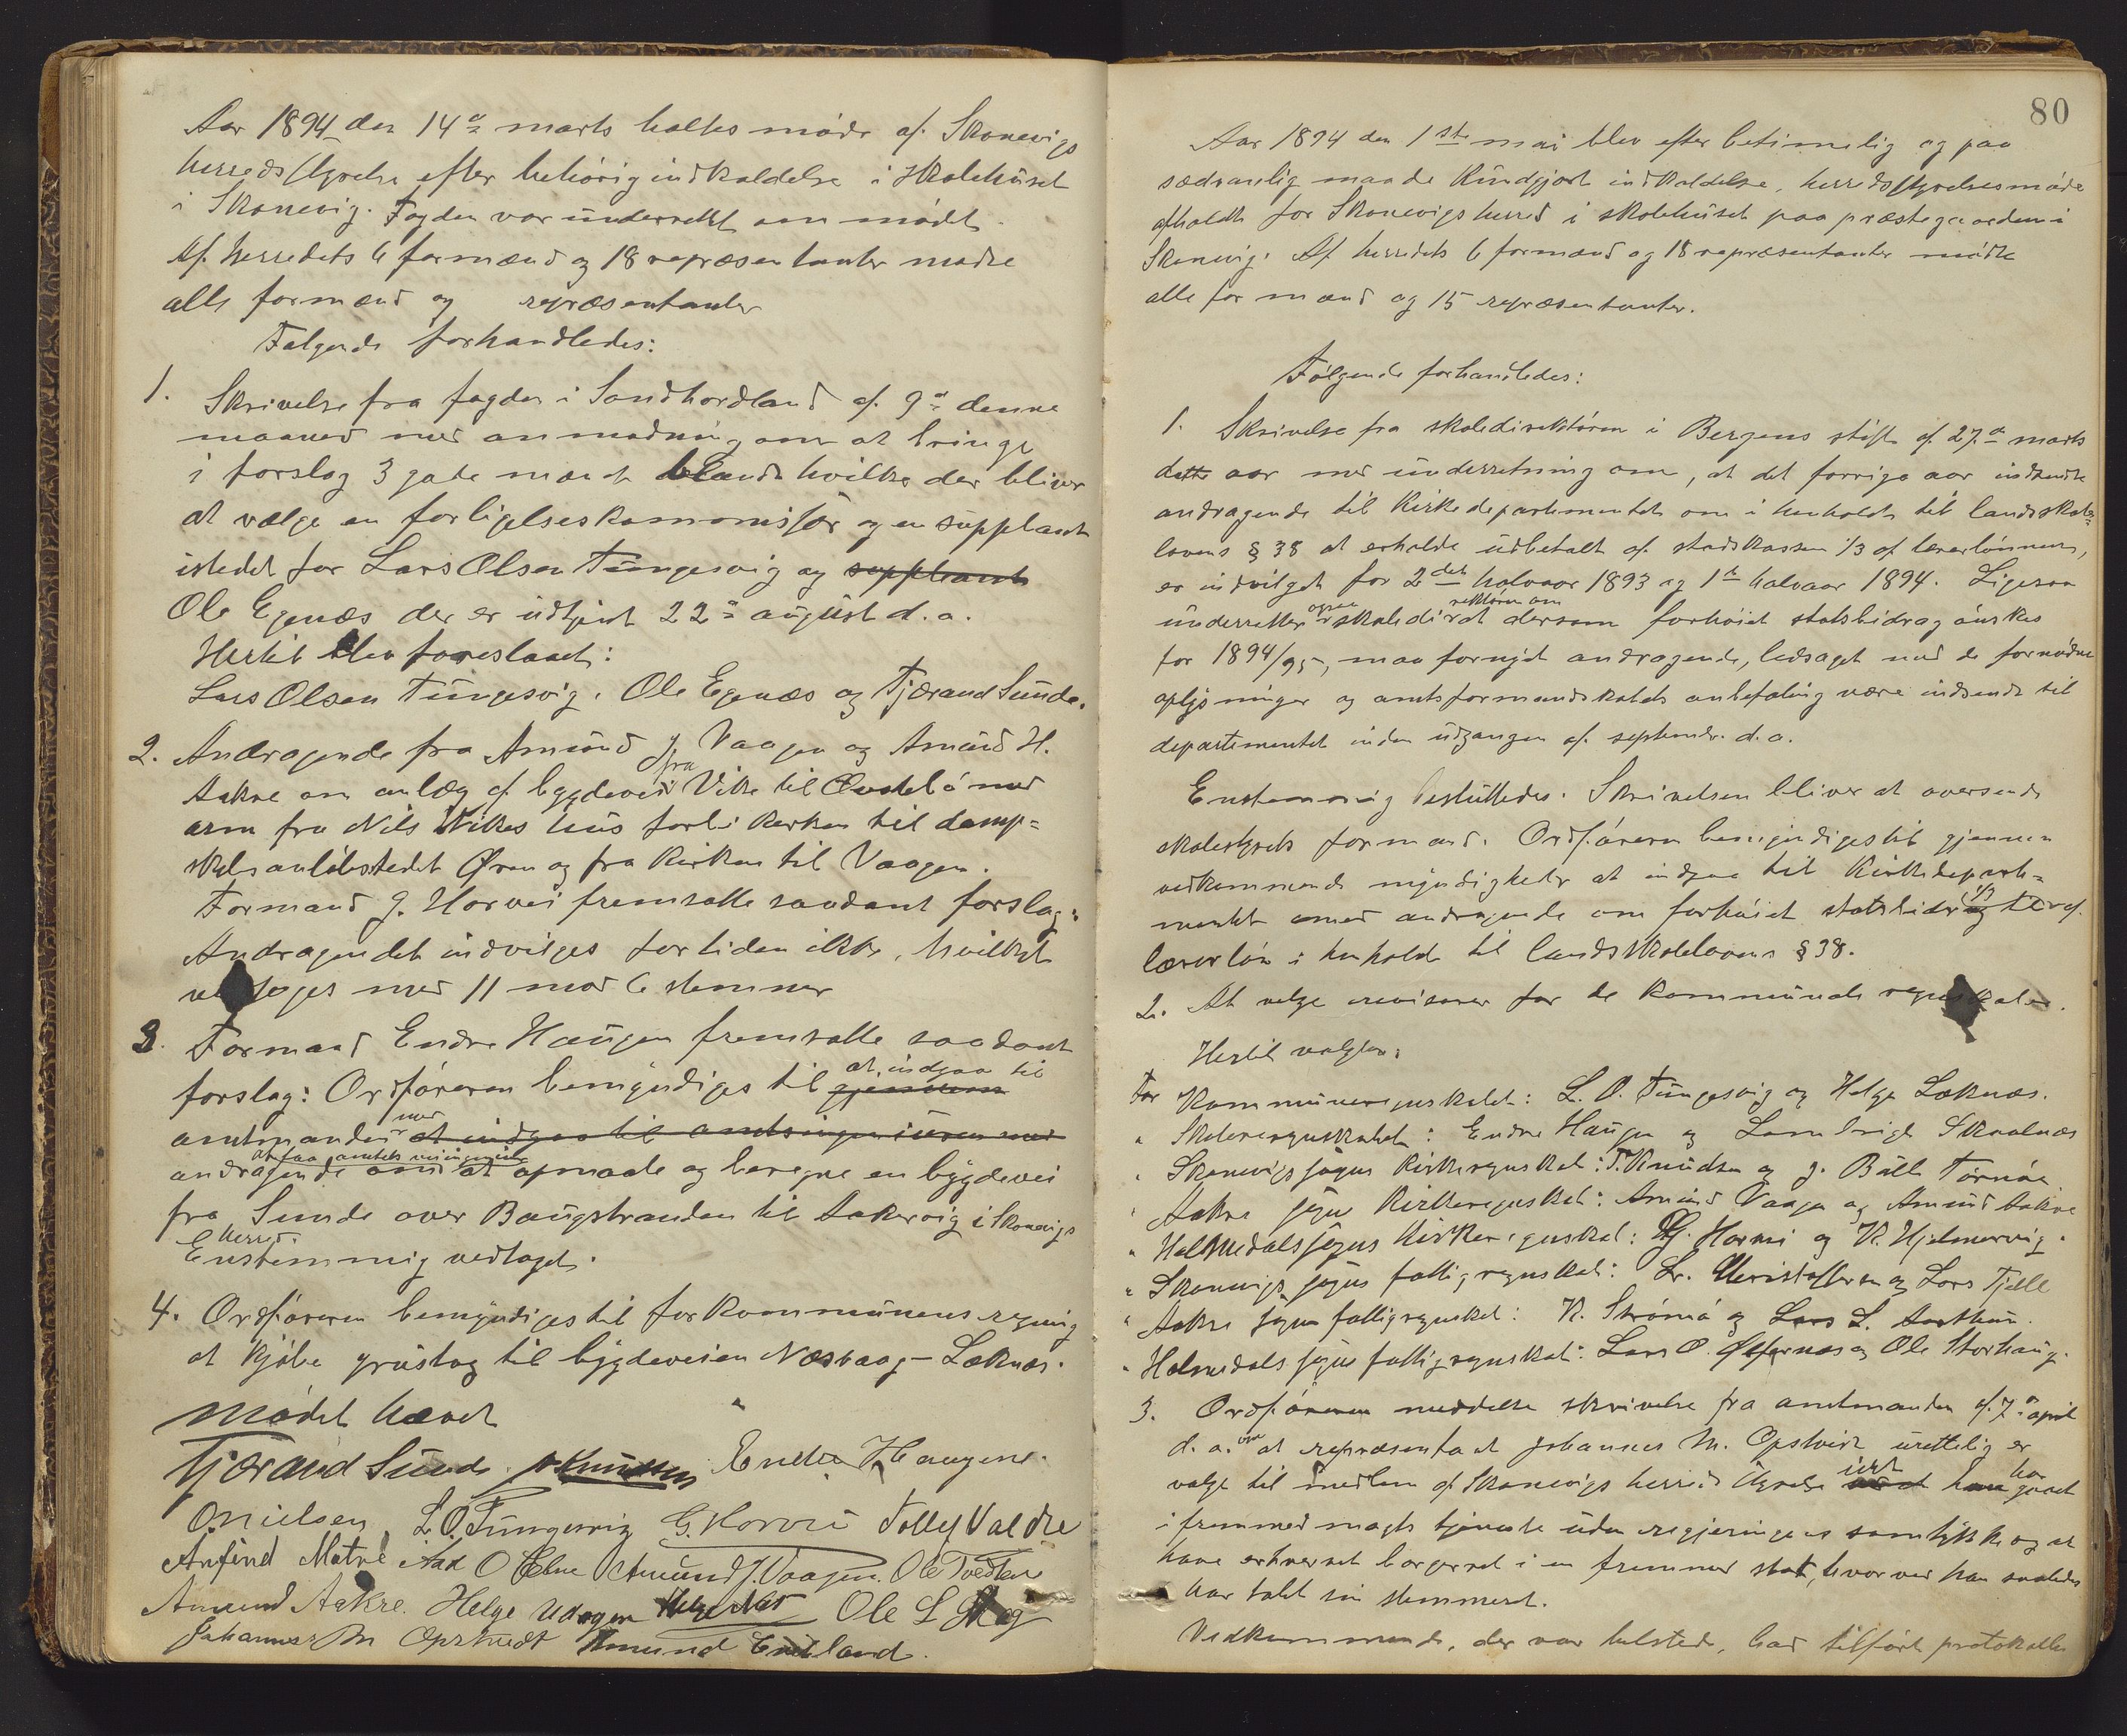 Aar 1894 den 14de marts holtes møde af Skonevigs
herredsstyrelse efter behørig indkaldelse i skolehuset
i Skonevig. Fogden var underrettet om mødet.
Af herredets 6 formænd og 18 repræsentanter mødte
alle formænd og repræsentanter
Følgende forhandledes:
1. Skrivelse fra fogden i Søndhordland af 9de denne
maaned med anmodning om at bringe
i forslag 3 gode mænd blandt hvilke der bliver
at vælge en forligelseskommissær og en suppleant
istedet for Lars Olsen Tungesvig og suppleant
Ole Egenæs der er udtjent 22de august d. a.
Hertil blev foreslaaet:
Lars Olsen Tungesvig, Ole Egenæs og Tjærand Sunde.
2. Andragende fra Amund J. Vaagen og Amund H.
Aakre om anlæg af bygdevei fra Vike til med
arm fra Nils Vikes hus forbi kirken til damp=
skibsanløbstedet Øren og fra kirken til Vaagen.
Formand G. Horvei fremsatte saadant forslag:
Andragendet indvilges fortiden ikke, hvilket
vedtoges med 11 mod 6 stemmer
3. Formand Endre Haugen fremsatte saadant
forslag: Ordføreren bemyndiges til gjennem at indgaa til
amtmanden med at indgaa til amtsingeniøren med
andragende om at faa amtets veiingeniør at opmaale og beregne en bygdevei
fra Sunde over Baugstranden til Aakervig i Skonevigs
herred.
Enstemmig vedtaget.
4. Ordføreren bemyndiges til for kommunens regning
at kjøbe grustag til bygdeveien Næsvaag - Læknæs.
Mødet hævet
Tjærand Sunde. Knudsen Endre Haugene.
O Nielsen L. O. Tungesvig G. Horvei Tolly Valdre
Anfind Matre Aad O Ebne Amund J. Vaagen. Ole Tvedten
Amund Aakre. Helge Ole L
Johannes M Opstvedt Amund
80
Aar 1894 den 1ste mai blev efter betimelig og paa
sædvanlig maade kundgjort indkaldelse, herredsstyrelsesmøde
afholdt for Skonevigs herred i skolehuset paa præstegaarden i
Skonevig. Af herredets 6 formænd og 18 repræsentanter mødte
alle formænd og 15 repræsentanter.
Følgende forhandledes:
1. Skrivelse fra skoledirektøren i Bergens stift af 27de marts
dette aar med underretning om, at det forrige aar indsendte
andragende til Kirkedepartementet om i henhold til landsskole=
lovens § 38 at erholde udbetalt af stadskassen 1/3 af lærerlønnen,
er indvilget for 2det halvaar 1893 og 1ste halvaar 1894. Ligesaa
underretter ogsaa skoledirektøren om at dersom forhøiet statsbidrag ønskes
for 1894/95, maa fornyet andragende, ledsaget med de fornødne
oplysninger og amtsformandskabets anbefaling være indsendt til
departementet inden udgangen af septembr. d. a.
Enstemmig besluttedes: Skrivelsen bliver at oversende
skolestyrets formand. Ordføreren bemyndiges til gjennem
vedkommende myndigheder at indgaa til Kirkedeparte=
mentet med andragende om forhøiet statsbidrag til 1/3 af
lærerløn i henhold til landsskolelovens § 38.
2. At vælge revisorer for de kommunale regnskaber.
Hertil valgtes:
For Kommuneregnskabet: L. O. Tungesvig og Helge Læknæs.
" Skoleregnskabet: Endre Haugen og Lambrigt Skaalnæs
" Skonevigs sogns kirkeregnskab: T. Knudsen og J. Bull Tornøe
" Aakre sogns kirkeregnskab: Amund Vaage og Amund Aakre
" Holmedals sogns kirkeregnskab: G. Horvei og K. Hjelmervig.
" Skonevigs sogns fattigregnskab: Kristoffersen og Lars Fjelle
" Aakre sogns fattigregnskab: K. Strømø og Lars L.
" Holmedals sogns fattigregnskab: Lars O. og Ole Storhaug.
3. Ordføreren meddelte skrivelse fra amtmanden af 7de april
d. a. om at repræsentant Johannes M. Opstvedt urettelig er
valgt til medlem af Skonevigs herredsstyrelse idet han har gaaet
i fremmed magts tjeneste uden regjeringens samtykke og at
have erhvervet borgerret i en fremmed stat, hvorved han saaledes
har tabt sin stemmeret.
Vedkommende, der var tilstede, lod tilføre protokollen